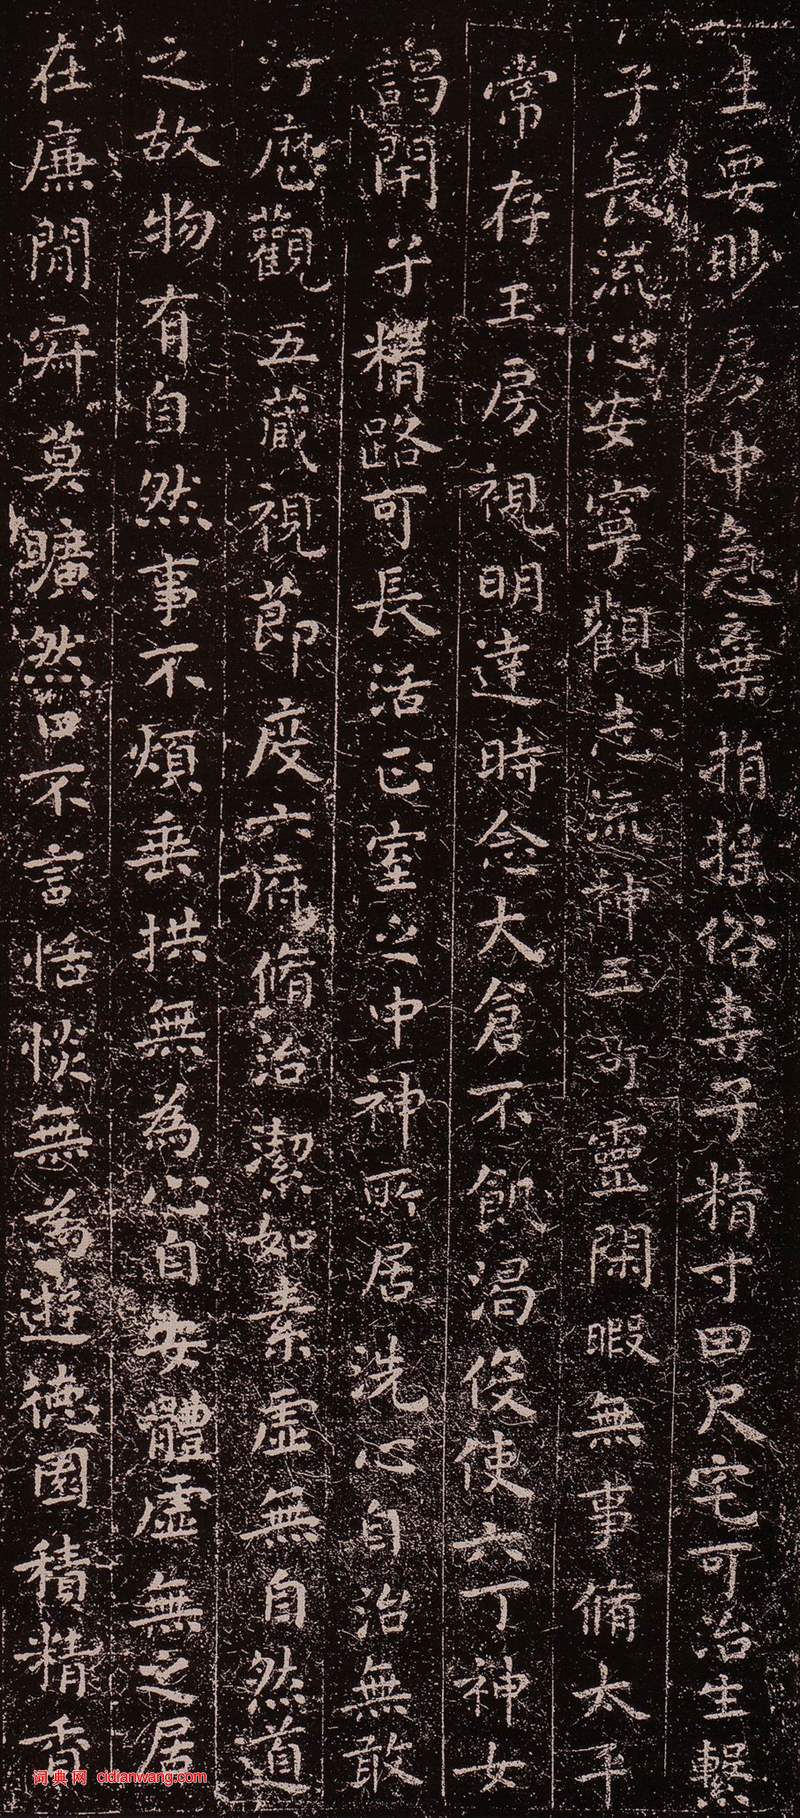 生要眇房中急棄捐搖俗專子精寸田尺宅可治生繫
子長流心安寧觀志流神三奇靈閑暇無事脩太平
常存玉房視明達時念大倉不飢渴伇使六丁神女
謁閇子精路可長活正室之中神所居洗心自治無敢
汙歷觀五藏視節度六府脩治潔如素虛無自然道
之故物有自然事不煩垂拱無為心自安體虛無之居
在廉閒寂莫曠然口不言恬惔無為遊德園積精香
词典网 cidianwang.com